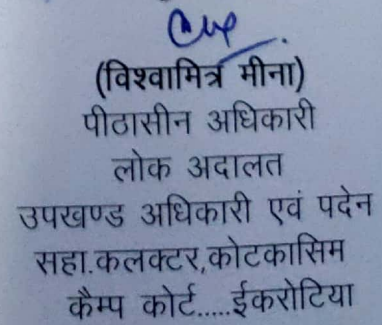 (विश्वामित्र मीना)
पीठासीन अधिकारी
लोक अदालत
उपखण्ड अधिकारी एवं पदेन
सहा.कलक्टर,कोटकासिम
कैम्प कोर्ट.....ईकरोटिया